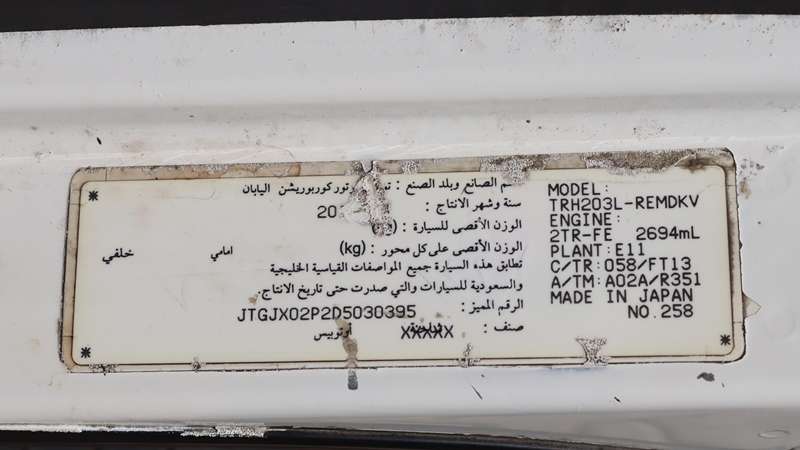 اسم الصانع وبلد الصنع : كوربوريشن اليابان
سنة وشهر الانتاج : 20
الوزن الأقصى للسيارة :
الوزن الأقصى على كل محور : (kg) امامي خلفي
تطابق هذه السيارة جميع المواصفات القياسية الخليجية
والسعودية للسيارات والتي صدرت حتى تاريخ الانتاج.
الرقم المميز : JTGJX02P2D5030395
صنف : XXXXX أوتوبيس
MODEL:
TRH203L-REMDKV
ENGINE:
2TR-FE 2694mL
PLANT:E11
C/TR:058/FT13
A/TM:A02A/R351
MADE IN JAPAN
NO.258